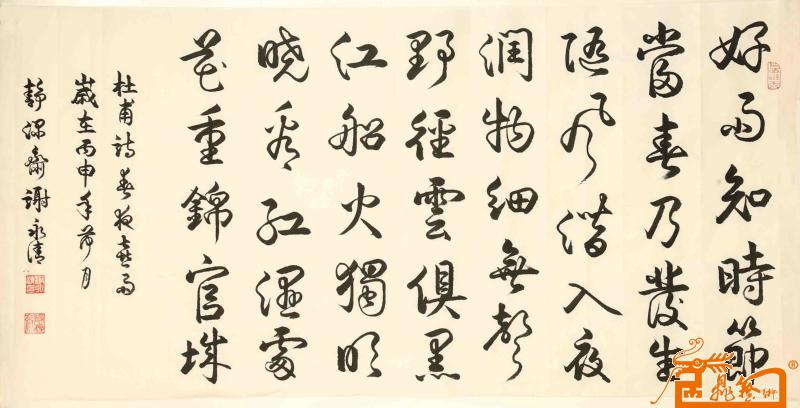 好雨知時節
當春乃發生
随風潛入夜
潤物細無聲
野徑雲俱黑
江船火獨明
曉看紅濕處
花重錦官城
杜甫詩春夜喜雨
歲在丙申年月
靜深齋謝永清